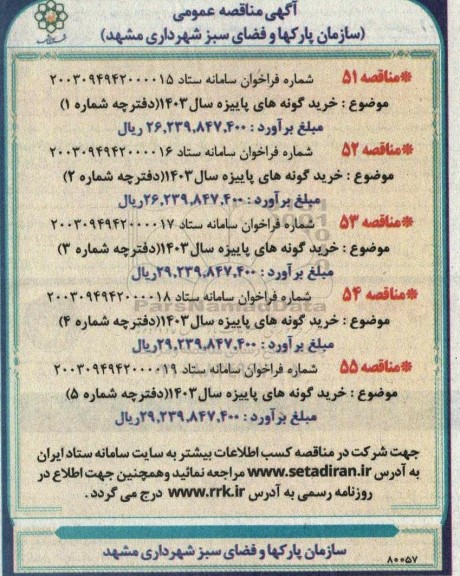 آگهی مناقصه عمومی
(سازمان پارکها و فضای سبز شهرداری مشهد)
*مناقصه ۵۱ شماره فراخوان سامانه ستاد ۲۰۰۳۰۹۴۹۴۲۰۰۰۰۱۵
موضوع : خرید گونه های پاییزه سال ۱۴۰۳(دفترچه شماره ۱)
مبلغ برآورد : ۲۶,۲۳۹,۸۴۷,۴۰۰ ریال
*مناقصه ۵۲ شماره فراخوان سامانه ستاد ۲۰۰۳۰۹۴۹۴۲۰۰۰۰۱۶
موضوع : خرید گونه های پاییزه سال ۱۴۰۳(دفترچه شماره ۲)
مبلغ برآورد : ۲۶,۲۳۹,۸۴۷,۴۰۰ریال
*مناقصه ۵۳ شماره فراخوان سامانه ستاد ۲۰۰۳۰۹۴۹۴۲۰۰۰۰۱۷
موضوع : خرید گونه های پاییزه سال ۱۴۰۳(دفترچه شماره ۳)
مبلغ برآورد : ۲۹,۲۳۹,۸۴۷,۴۰۰ریال
*مناقصه ۵۴ شماره فراخوان سامانه ستاد ۲۰۰۳۰۹۴۹۴۲۰۰۰۰۱۸
ParsNamadData
موضوع : خرید گونه های پاییزه سال ۱۴۰۳(دفترچه شماره ۴)
مبلغ برآورد : ۲۹,۲۳۹,۸۴۷,۴۰۰ریال
*مناقصه ۵۵ شماره فراخوان سامانه ستاد ۲۰۰۳۰۹۴۹۴۲۰۰۰۰۱۹
موضوع : خرید گونه های پاییزه سال ۱۴۰۳(دفترچه شماره ۵)
مبلغ برآورد : ۲۹,۲۳۹,۸۴۷,۴۰۰ریال
جهت شرکت در مناقصه کسب اطلاعات بیشتر به سایت سامانه ستاد ایران
به آدرس www.setadiran.ir مراجعه نمائید وهمچنین جهت اطلاع در
روزنامه رسمی به آدرس www.rrk.ir درج می گردد .
سازمان پارکها و فضای سبز شهرداری مشهد
۸۰۰۵۷